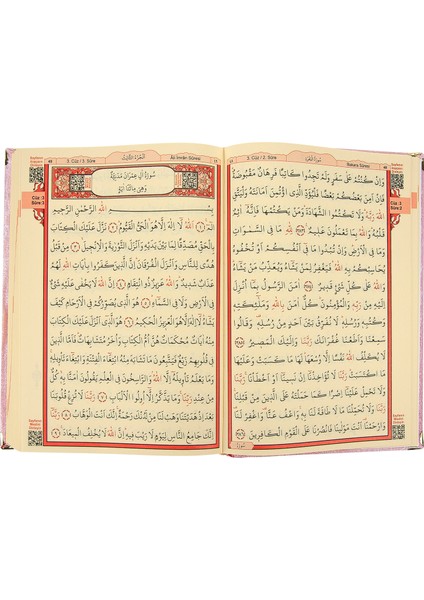 3. Cüz / 2. Sûre
سُورَةُ الْبَقَرَةِ
Bakara Sûresi
48
وَاِنْ كُنْتُمْ عَلٰى سَفَرٍ وَلَمْ تَجِدُوا كَاتِبًا فَرِهَانٌ مَقْبُوضَةٌ
فَاِنْ اَمِنَ بَعْضُكُمْ بَعْضًا فَلْيُؤَدِّ الَّذِي اؤْتُمِنَ اَمَانَتَهُ وَلْيَتَّقِ
اللّٰهَ رَبَّهُ وَلَا تَكْتُمُوا الشَّهَادَةَ وَمَنْ يَكْتُمْهَا فَاِنَّهُ اٰثِمٌ
قَلْبُهُ وَاللّٰهُ بِمَا تَعْمَلُونَ عَلِيمٌ ﴿٢٨٣﴾ لِلّٰهِ مَا فِي السَّمٰوَاتِ
وَمَا فِي الْاَرْضِ وَاِنْ تُبْدُوا مَا فِي اَنْفُسِكُمْ اَوْ تُخْفُوهُ
يُحَاسِبْكُمْ بِهِ اللّٰهُ فَيَغْفِرُ لِمَنْ يَشَاءُ وَيُعَذِّبُ مَنْ يَشَاءُ
وَاللّٰهُ عَلٰى كُلِّ شَيْءٍ قَدِيرٌ ﴿٢٨٤﴾ اٰمَنَ الرَّسُولُ بِمَا اُنْزِلَ
اِلَيْهِ مِنْ رَبِّهِ وَالْمُؤْمِنُونَ كُلٌّ اٰمَنَ بِاللّٰهِ وَمَلٰئِكَتِهِ
وَكُتُبِهِ وَرُسُلِهِ لَا نُفَرِّقُ بَيْنَ اَحَدٍ مِنْ رُسُلِهِ وَقَالُوا
سَمِعْنَا وَاَطَعْنَا غُفْرَانَكَ رَبَّنَا وَاِلَيْكَ الْمَصِيرُ ﴿٢٨٥﴾
لَا يُكَلِّفُ اللّٰهُ نَفْسًا اِلَّا وُسْعَهَا لَهَا مَا كَسَبَتْ وَعَلَيْهَا
مَا اكْتَسَبَتْ رَبَّنَا لَا تُؤَاخِذْنَا اِنْ نَسِينَا اَوْ اَخْطَأْنَا رَبَّنَا
وَلَا تَحْمِلْ عَلَيْنَا اِصْرًا كَمَا حَمَلْتَهُ عَلَى الَّذِينَ مِنْ
قَبْلِنَا رَبَّنَا وَلَا تُحَمِّلْنَا مَا لَا طَاقَةَ لَنَا بِهِ وَاعْفُ عَنَّا وَاغْفِرْ لَنَا
وَارْحَمْنَا اَنْتَ مَوْلٰينَا فَانْصُرْنَا عَلَى الْقَوْمِ الْكَافِرِينَ ﴿٢٨٦﴾
Cüz : 3
Sûre 2
49
3. Cüz / 3. Sûre
اَلْجُزْءُ الثَّالِثُ
Âl-i İmrân Sûresi
سُورَةُ اٰلِ عِمْرٰنَ مَدَنِيَّةٌ
وَهِيَ مِائَتَا اٰيَةٍ
بِسْمِ اللّٰهِ الرَّحْمٰنِ الرَّحِيمِ
الٓمٓ ﴿١﴾ اَللّٰهُ لَا اِلٰهَ اِلَّا هُوَ الْحَيُّ الْقَيُّومُ ﴿٢﴾ نَزَّلَ عَلَيْكَ الْكِتَابَ
بِالْحَقِّ مُصَدِّقًا لِمَا بَيْنَ يَدَيْهِ وَاَنْزَلَ التَّوْرٰيةَ وَالْاِنْجِيلَ ﴿٣﴾ مِنْ قَبْلُ
هُدًى لِلنَّاسِ وَاَنْزَلَ الْفُرْقَانَ اِنَّ الَّذِينَ كَفَرُوا بِاٰيَاتِ اللّٰهِ لَهُمْ
عَذَابٌ شَدِيدٌ وَاللّٰهُ عَزِيزٌ ذُو انْتِقَامٍ ﴿٤﴾ اِنَّ اللّٰهَ لَا يَخْفٰى عَلَيْهِ شَيْءٌ
فِي الْاَرْضِ وَلَا فِي السَّمَاءِ ﴿٥﴾ هُوَ الَّذِي يُصَوِّرُكُمْ فِي الْاَرْحَامِ كَيْفَ
يَشَاءُ لَا اِلٰهَ اِلَّا هُوَ الْعَزِيزُ الْحَكِيمُ ﴿٦﴾ هُوَ الَّذِي اَنْزَلَ عَلَيْكَ الْكِتَابَ
مِنْهُ اٰيَاتٌ مُحْكَمَاتٌ هُنَّ اُمُّ الْكِتَابِ وَاُخَرُ مُتَشَابِهَاتٌ فَاَمَّا الَّذِينَ
فِي قُلُوبِهِمْ زَيْغٌ فَيَتَّبِعُونَ مَا تَشَابَهَ مِنْهُ ابْتِغَاءَ الْفِتْنَةِ وَابْتِغَاءَ تَأْوِيلِهِ
وَمَا يَعْلَمُ تَأْوِيلَهُ اِلَّا اللّٰهُ وَالرَّاسِخُونَ فِي الْعِلْمِ يَقُولُونَ اٰمَنَّا بِهِ كُلٌّ
مِنْ عِنْدِ رَبِّنَا وَمَا يَذَّكَّرُ اِلَّا اُولُوا الْاَلْبَابِ ﴿٧﴾ رَبَّنَا لَا تُزِغْ قُلُوبَنَا
بَعْدَ اِذْ هَدَيْتَنَا وَهَبْ لَنَا مِنْ لَدُنْكَ رَحْمَةً اِنَّكَ اَنْتَ الْوَهَّابُ ﴿٨﴾ رَبَّنَا
اِنَّكَ جَامِعُ النَّاسِ لِيَوْمٍ لَا رَيْبَ فِيهِ اِنَّ اللّٰهَ لَا يُخْلِفُ الْمِيعَادَ ﴿٩﴾
Cüz : 3
Sûre 3